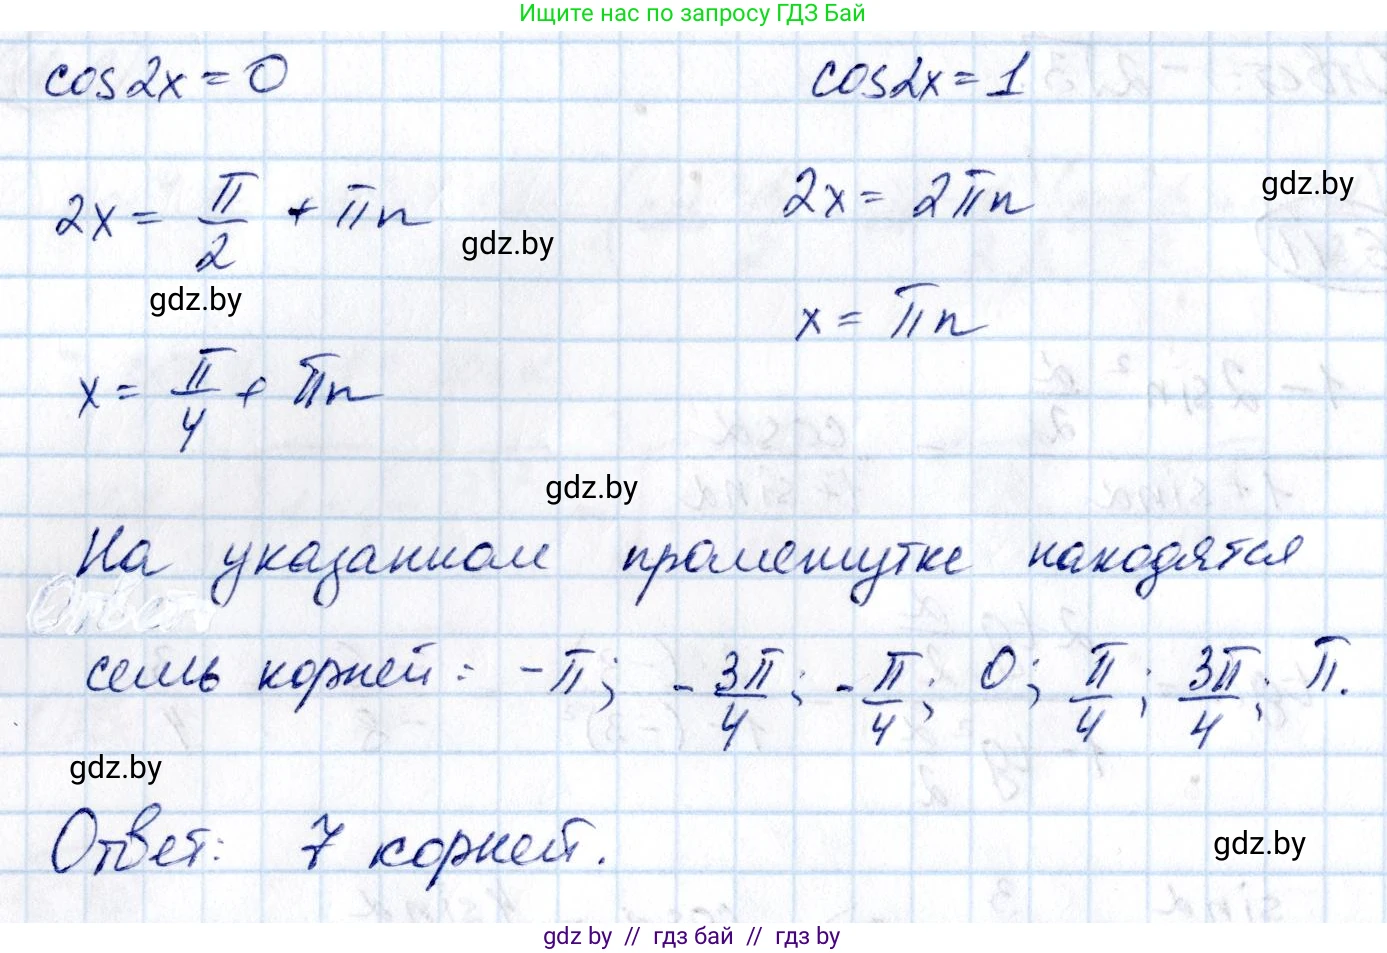 Ищите нас по запросу ГДЗ Бай
cos2x = 0
cos2x = 1
2x = π/2 + πn
2x = 2πn
gdz.by
gdz.by
gdz.by
x = πn
x = π/4 + πn
gdz.by
На указанном промежутке находятся
семь корней: -π; -3π/4; -π/4; 0; π/4; 3π/4; π.
gdz.by
Ответ: 7 корней.
gdz.by
gdz by // гдз бай // гдз by